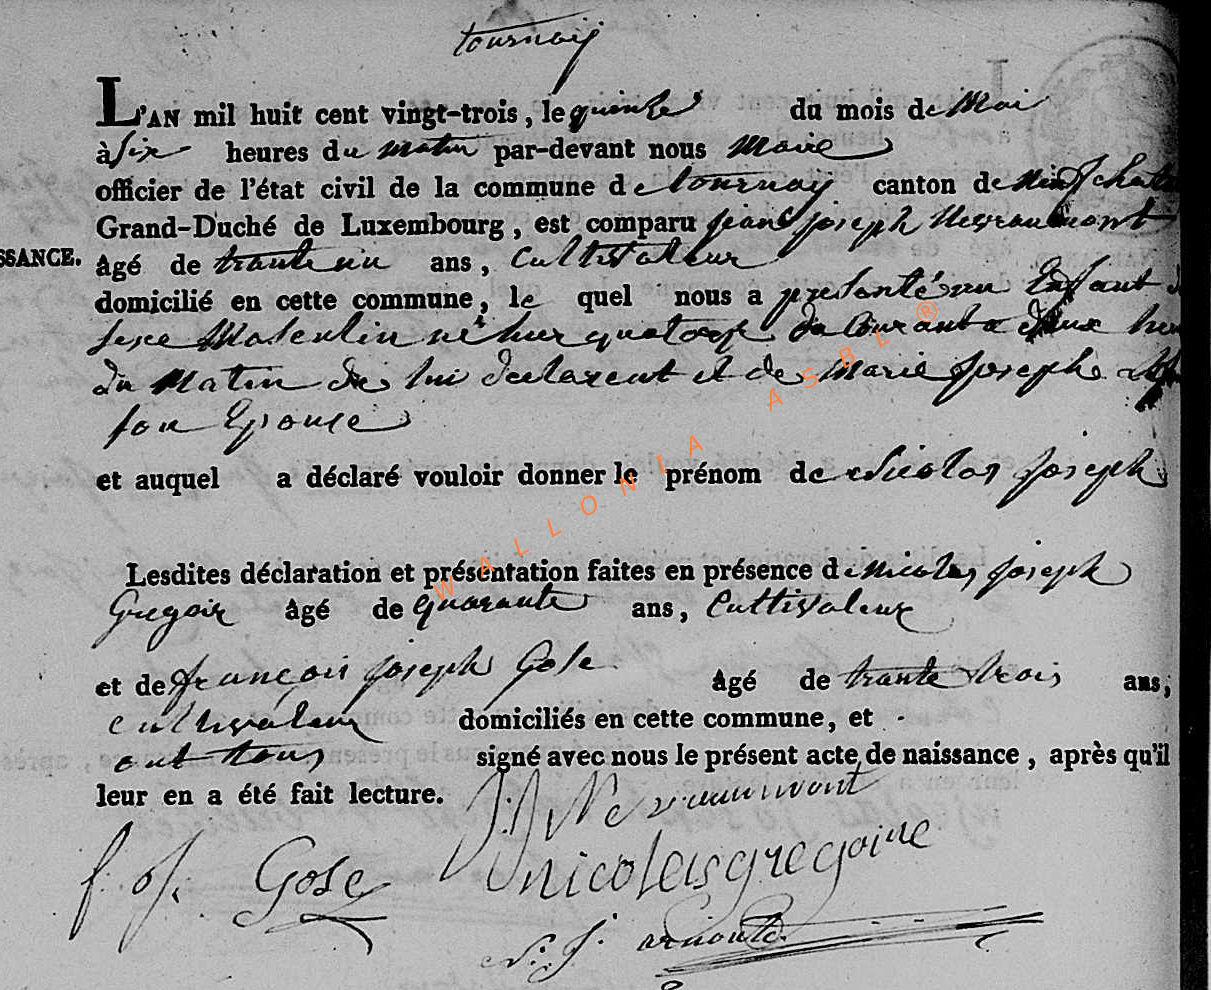 tournay
L'AN mil huit cent vingt-trois, le quinze du mois de Mai
à six heures du matin par-devant nous Maire
officier de l'état civil de la commune de tournay canton de
Grand-Duché de Luxembourg, est comparu jean joseph Nevraumont
SSANCE.
âgé de trante un ans, Cultivateur
domicilié en cette commune, le quel nous a presenté un Enfant
sexe Masculin né hier quatorze du Courant a deux
du Matin de lui declarent et de Marie Joseph
son Epouse
et auquel a déclaré vouloir donner le prénom de Nicolas joseph
Lesdites déclaration et présentation faites en présence de nicolas joseph
Gregoir âgé de quarante ans, Cultivateur
et de françois joseph Gose âgé de trante trois ans,
cultivateur domiciliés en cette commune, et
ont tous signé avec nous le présent acte de naissance, après qu'il
leur en a été fait lecture.
j:j Nevraumont
f. j. Gose
nicolas gregoire
N. J. arnould
WALLONIA ASBL ®